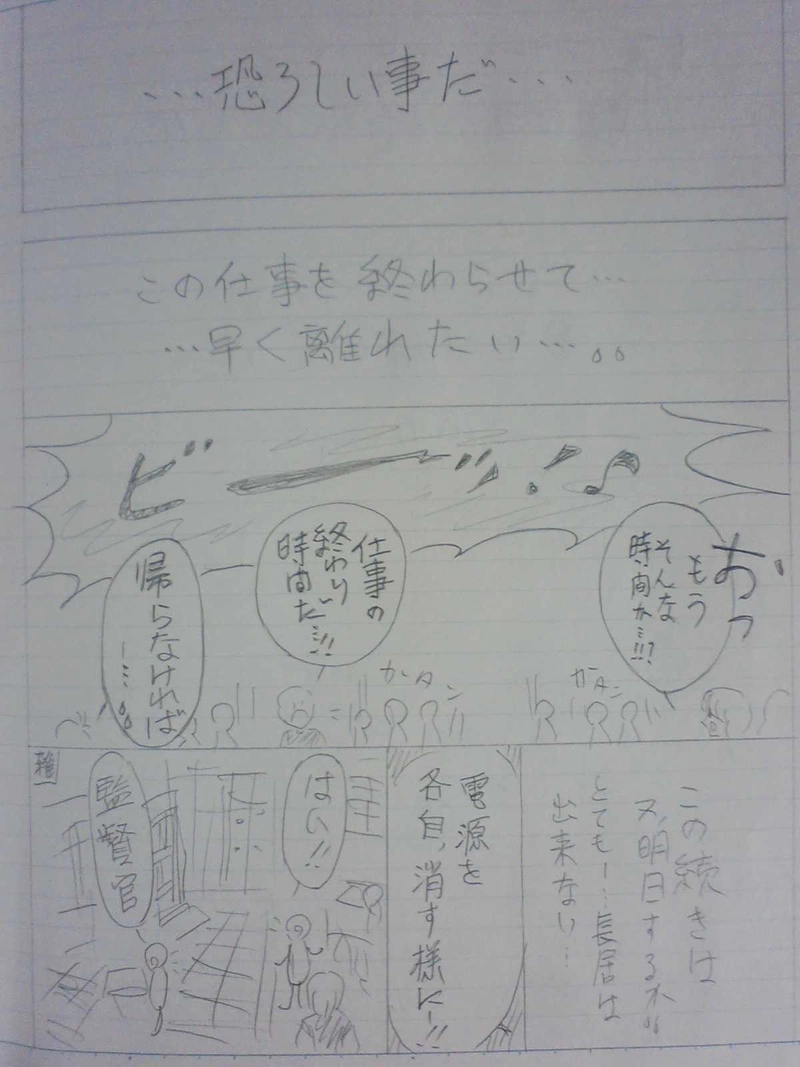 …恐ろしい事だ…
この仕事を終わらせて…
…早く離れたい…。。
ビーーッ!♪
おっ
もう
そんな
時間か…!!?
仕事の
終わり
時間だ…!!
帰らなければ
ー…。。
ガタン
ガタン
この続きは
又、明日するか。。
とてもー…長居は
出来ない…
電源を
各自、消す様にー!!
はい!!
監督官